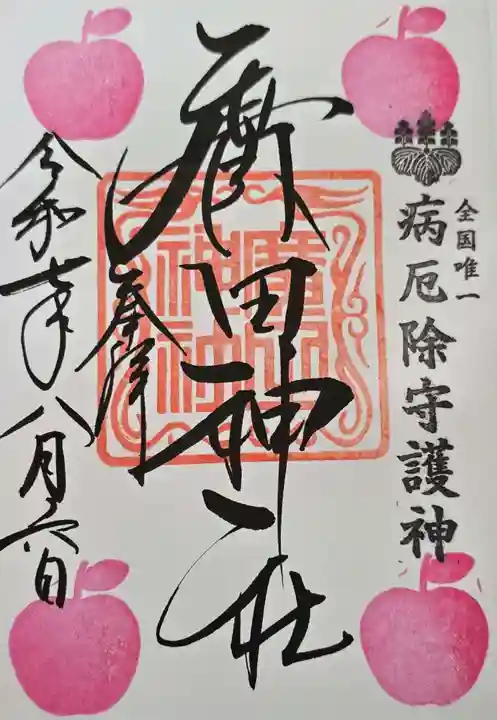 全国唯一
病厄除守護神
廣田神社
廣田
神社
奉拝
令和七年八月六日